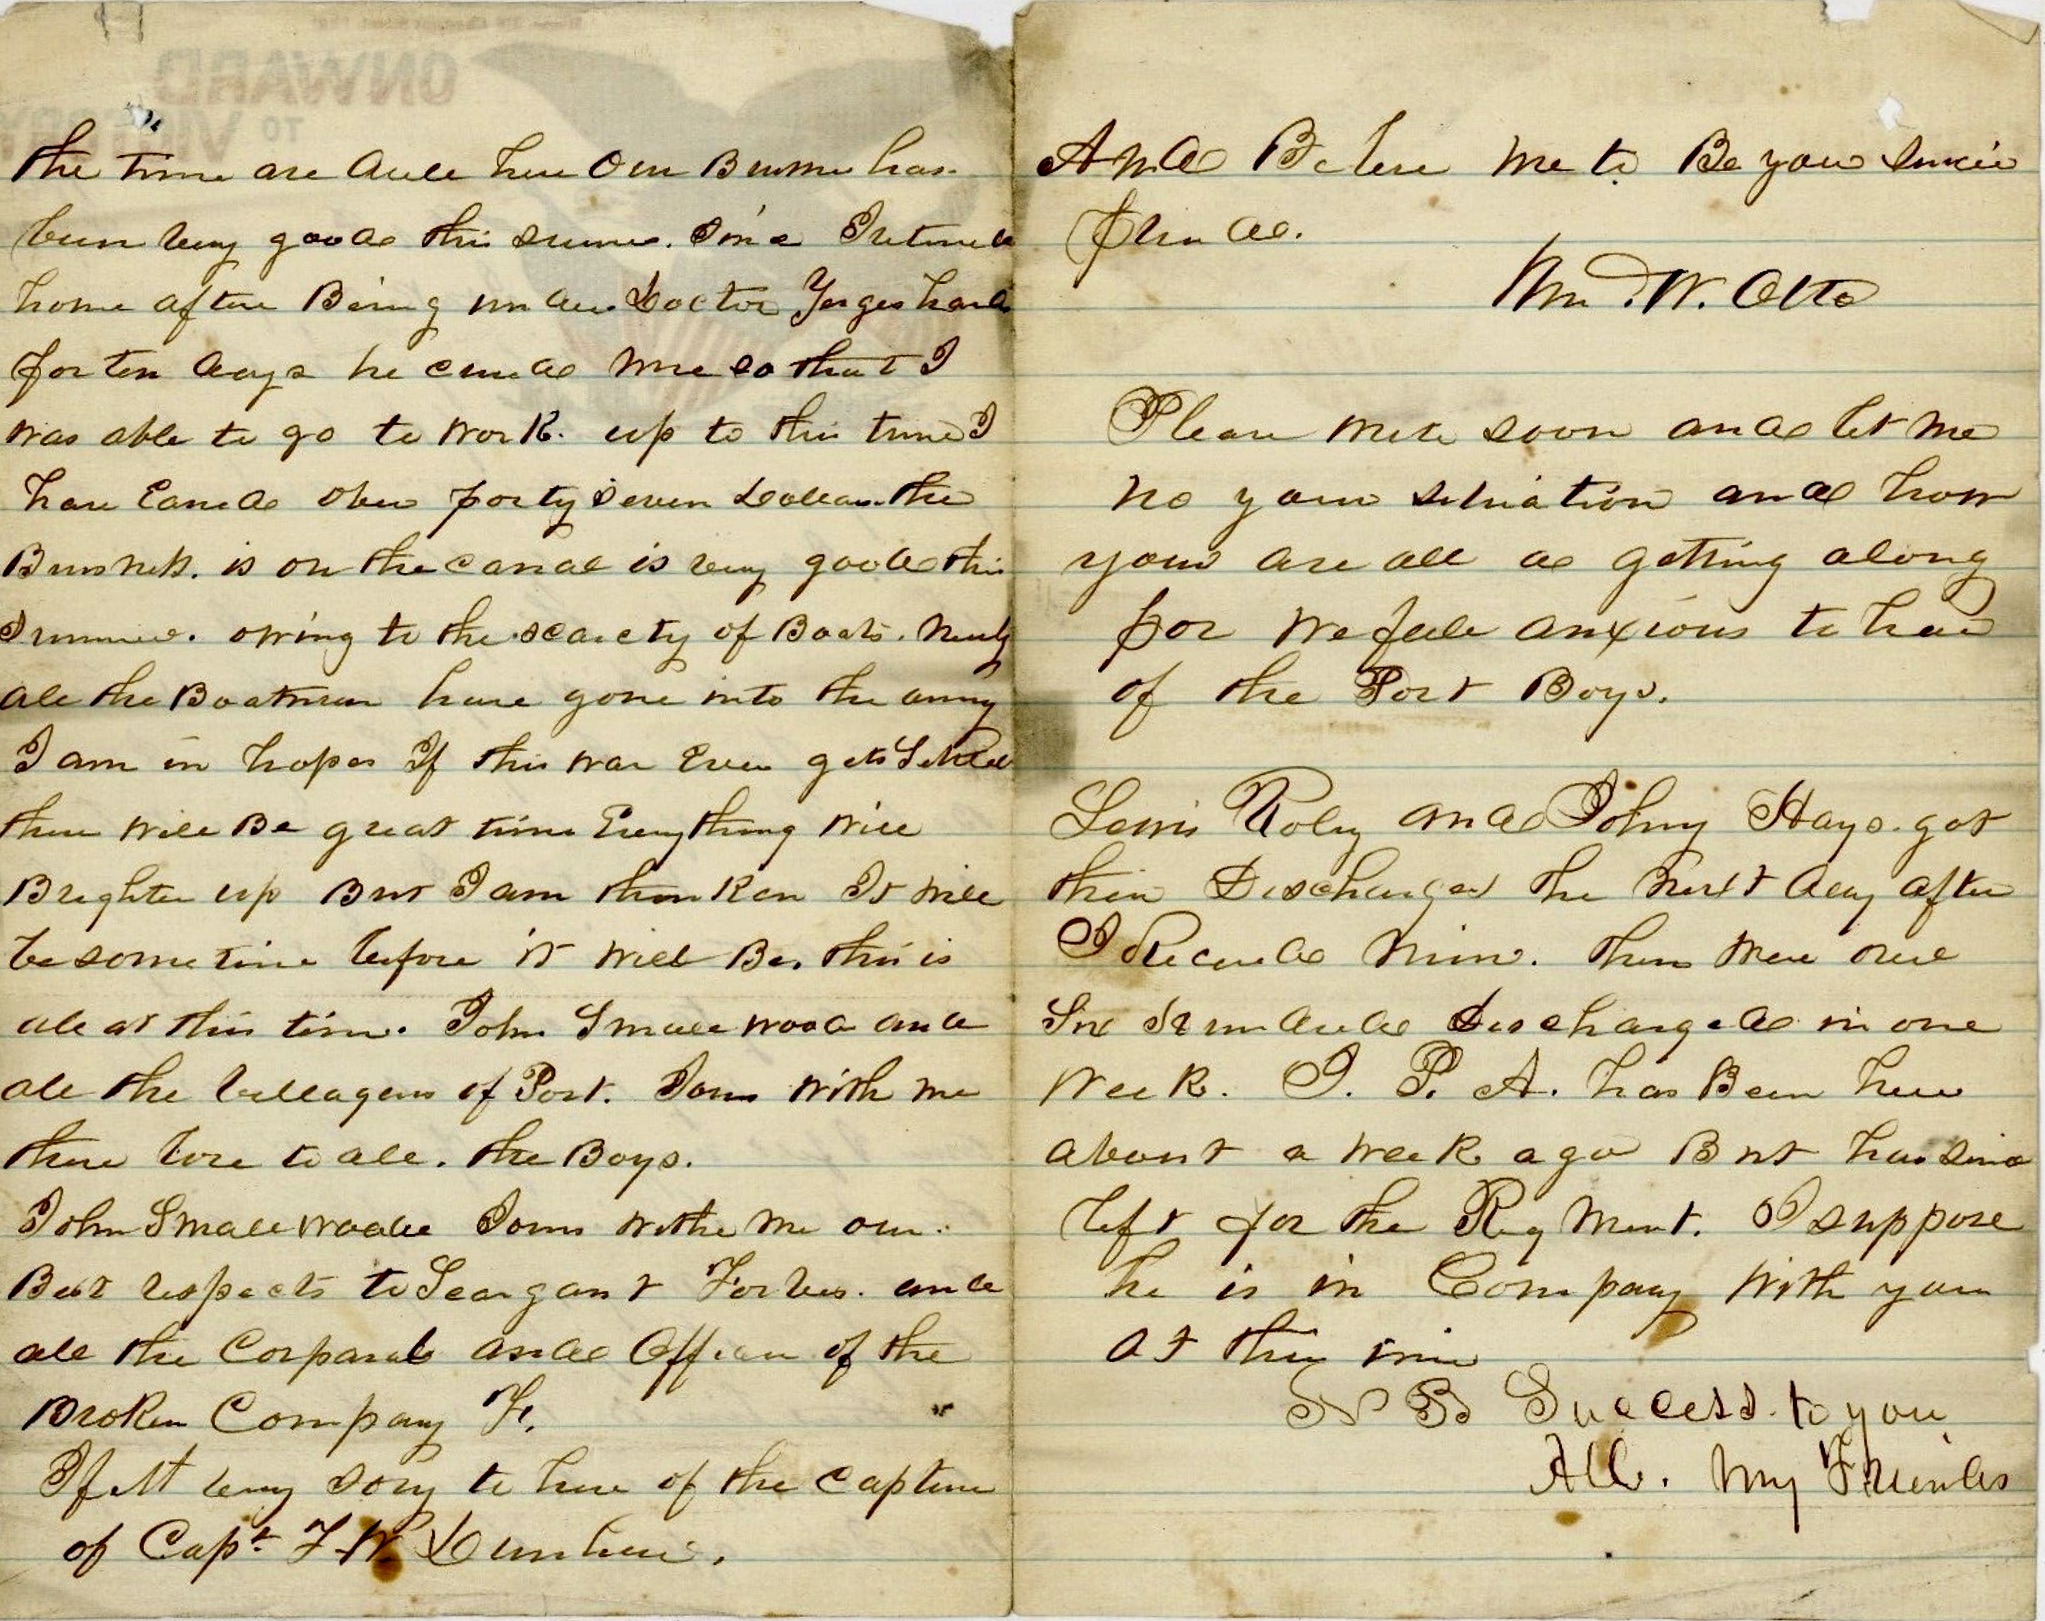 ONWARD
TO VICTORY
the time are dule here Our Buisness has
been very goode this summer. Since I returned
home after Being under Doctor Yerges hands
for ten days he cured me so that I
was able to go to work. up to this time I
have Earned over forty seven Dollars. the
Buisness. is on the canal is very goode this
Summer. owring to the scarcty of Boats. Nearly
all the Boatmen have gone into the army
I am in hopes If this war Ever gets Setteled
there will Be great times Everything will
Brighten up But I am thinken It will
be sometime before it will Be. this is
all at this time. John Smallwood and
all the villagers of Port. Joins with me
there love to all. the Boys.
John Smallwoode Joins withe me our
Best respects to Seargant Forbes. and
all the Corparals and Officers of the
Broken Company F.
I felt very sory to here of the Capture
of Capt. F. W.
And Beleve me to Be your sincere
friend.
Wm. W. Otto
Please write soon and let me
no your situation and how
your are all a getting along
for we feele anxious to hear
of the Port Boys.
Lewis Roby and Johny Hays. got
their Discharges the next day after
I Received mine. there were over
Six Hundred Discharged in one
Week. J. P. A. has Been here
about a week ago But has since
left for the Regment. I suppose
he is in Company with you
at this time
N B Success to you
All. My Friends